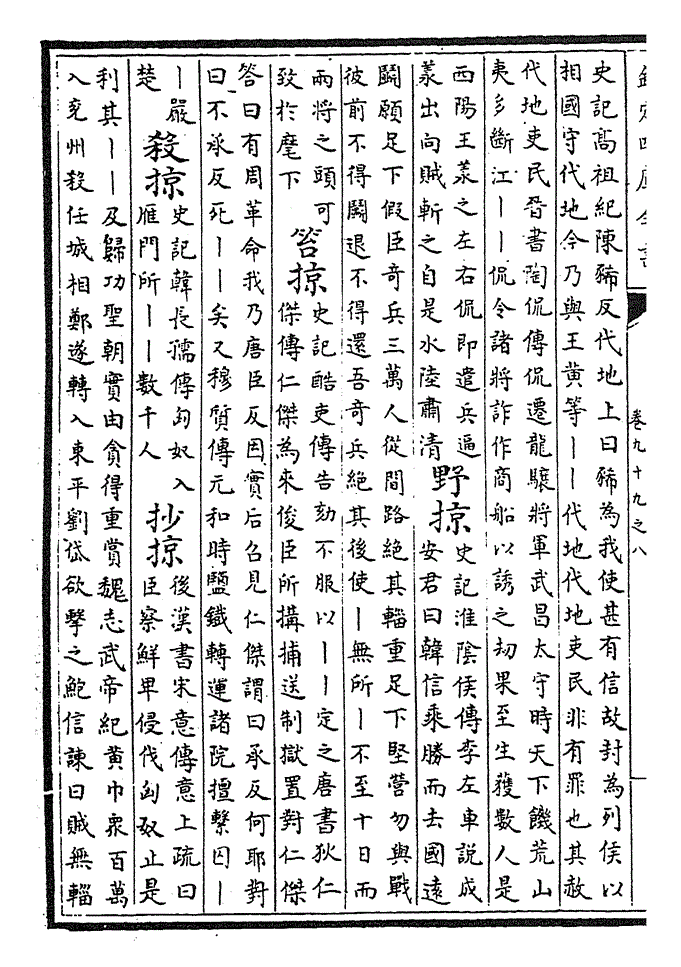 欽定四庫全書
卷九十九之八
史記高祖紀陳豨反代地上曰豨為我使甚有信故封為列侯以
相國守代地今乃與王黄等丨丨代地代地吏民非有罪也其赦
代地吏民晉書陶侃傳侃遷龍驤將軍武昌太守時天下饑荒山
夷多斷江丨丨侃令諸將詐作商船以誘之刼果至生獲數人是
西陽王羕之左右侃即遣兵逼
羕出向賊斬之自是水陸肅清
野掠
史記淮隂侯傳李左車説成
安君曰韓信乘勝而去國逺
鬭願足下假臣奇兵三萬人從間路絶其輜重足下堅營勿與戰
彼前不得鬭退不得還吾奇兵絶其後使丨無所丨不至十日而
兩將之頭可
致於麾下
笞掠
史記酷吏傳告劾不服以丨丨定之唐書狄仁
傑傳仁傑為來俊臣所搆捕送制獄置對仁傑
答曰有周革命我乃唐臣反固實后召見仁傑謂曰承反何耶對
曰不承反死丨丨矣又穆質傳元和時鹽鐵轉運諸院擅繫囚丨
丨嚴
楚
殺掠
史記韓長孺傳匈奴入
雁門所丨丨數千人
抄掠
後漢書宋意傳意上疏曰
臣察鮮卑侵伐匈奴止是
利其丨丨及歸功聖朝實由貪得重賞魏志武帝紀黄巾衆百萬
入兖州殺任城相鄭遂轉入東平劉岱欲擊之鮑信諫曰賊無輜